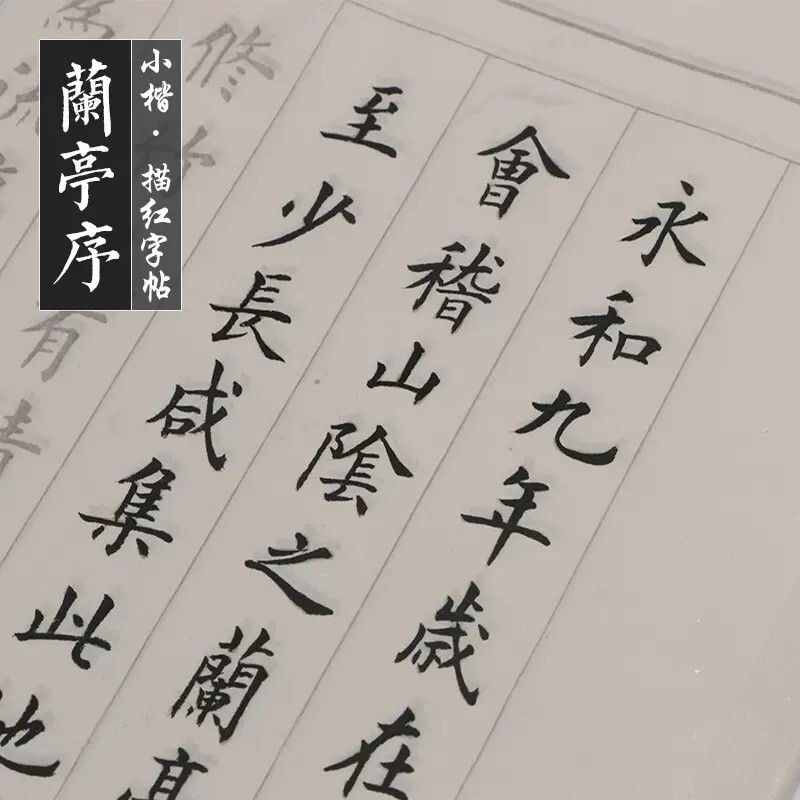 蘭亭序
小楷·描红字帖
永和九年歲在
會稽山陰之蘭亭
至少長咸集此地
修竹
有清
為流